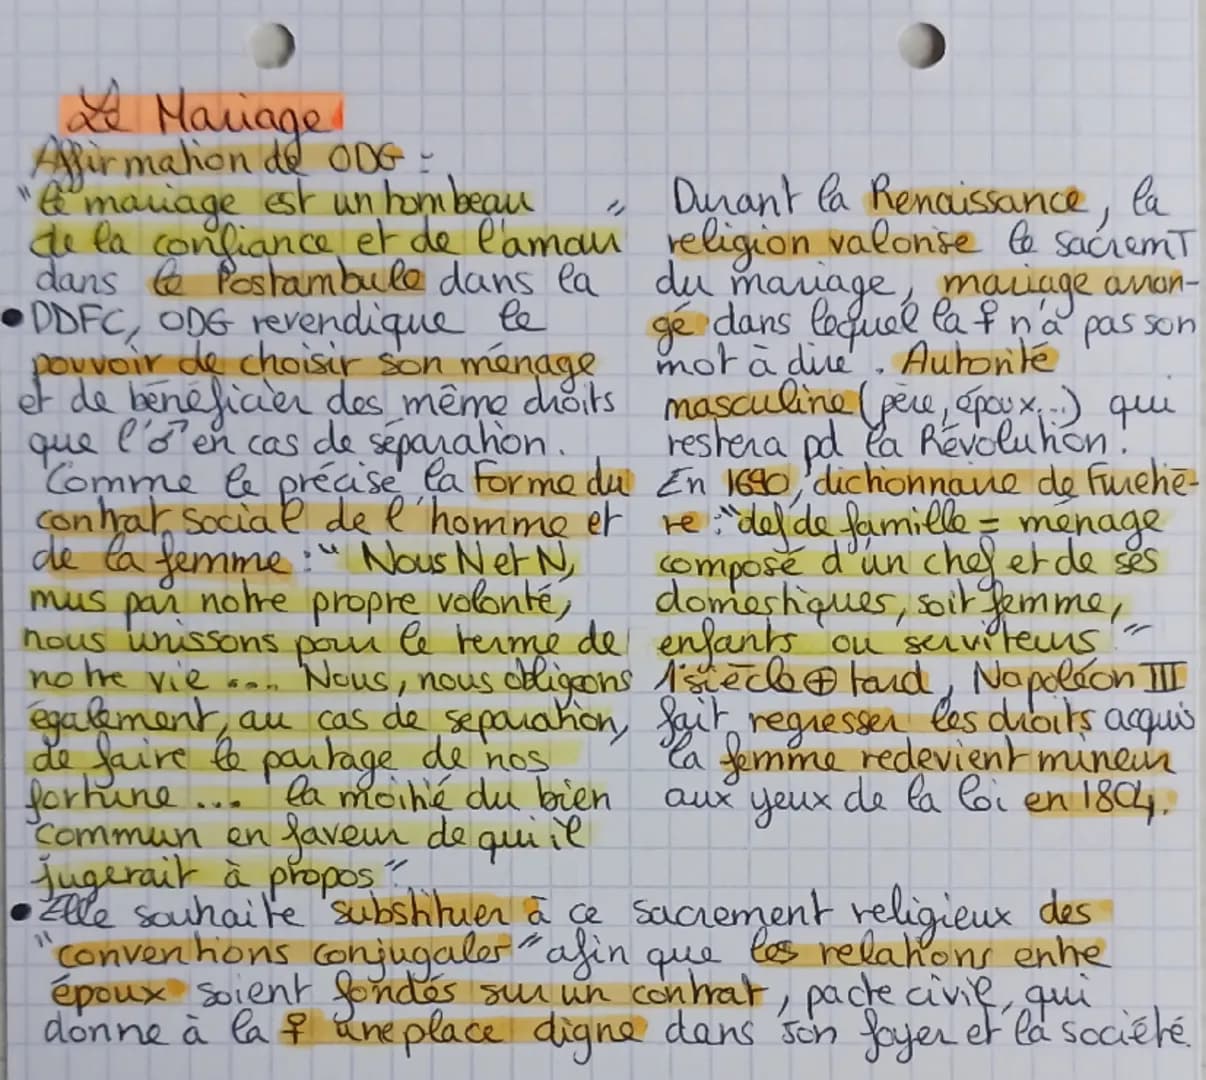 Le Mariage
Affirmation de ODG :
"le mariage est un tombeau
de la confiance et de l'amour"
dans le Postambule dans la
• DDFC, ODG revendique le
pouvoir de choisir son ménage
et de bénéficier des même droits
que l'♂ en cas de séparation.
Comme le précise la Forme du
contrat social de l'homme et
de la femme : " Nous N et N,
mus par notre propre volonté,
nous unissons pour le terme de
notre vie .... Nous, nous obligeons
également, au cas de separation,
de faire le partage de nos
fortune ... la moitié du bien
commun en faveur de qui il
jugerait à propos"
Durant la Renaissance, la
religion valorise le sacremT
du mariage, mariage arran-
gé dans lequel la ♀ n'a pas son
mot à dire. Autorité
masculine (père, époux,...) qui
restera pd la Révolution.
En 1690, dictionnaire de Furetiè-
re : "def de famille = ménage
composé d'un chef et de ses
domestiques, soit femme,
enfants ou serviteurs"
1 siècle ⊕ tard, Napoléon III
fait regresser les droits acquis
la femme redevient mineur
aux yeux de la loi en 1804.
• Elle souhaite substituer à ce sacrement religieux des
"conventions conjugales" afin que les relations entre
époux soient fondés sur un contrat, pacte civil, qui
donne à la ♀ une place digne dans son foyer et la société.